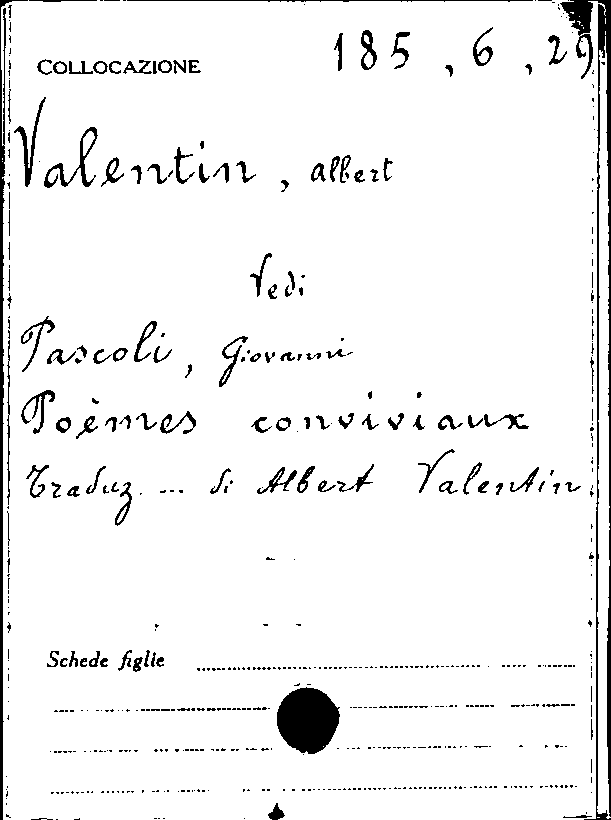 COLLOCAZIONE 185, 6, 29
Valentin, Albert
Vedi
Pascoli, Giovanni
Poèmes conviviaux
Traduz. ... di Albert Valentin.
Schede figlie